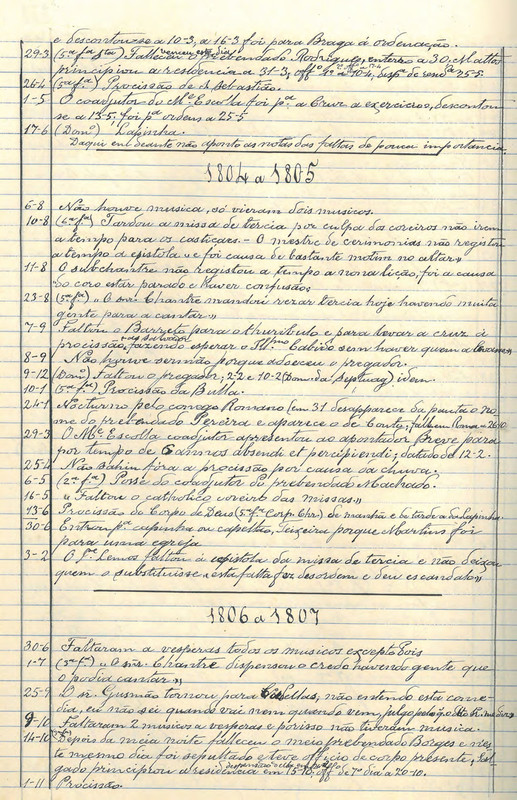 e descontou-se a 10-3, a 16-3 foi para Braga á ordenação.
29-3 (5ª fª stª) Falleceu o Prebendado Rodrigues, enterro a 30, Mattos
principiou a residencia a 31-3, off.º 1º a 10-4, disp. de send.ª 25-5.
26-4 (5ª fª) Procissão de S. Sebastião.
1-5 O coadjutor do M.e Escolla foi p.ª a Cruz a exercicios, descontou
se a 13-5. foi p.ª ordens a 25-5
17-6 (Dom.º) Lapinha.
Daqui em deante não aponto as notas das faltas de pouca importancia.
1804 a 1805
6-8 Não houve musica, só vieram dois musicos.
10-8 (6ª fª) Tardou a missa de tercia por culpa dos coreiros não irem
a tempo para os casticaes. - O mestre de cerimonias não registou
a tempo a epistola «e foi causa de bastante motim no altar»
11-8 O subchantre não registou a tempo a nona lição, foi a causa
do coro estar parado e haver confusão;
23-8 (5ª fª) «O snr. Chantre mandou rezar tercia hoje havendo muita
gente para a cantar»
7-9 Faltou o Barreto para o thuribulo e para levar a cruz á
procissão, fazendo esperar o Ill.mo Cabido sem haver quem a levasse»
8-9 Não houve sermão porque adoeceu o pregador.
9-12 (Dom.) Faltou o pregador; 2-2 e 10-2 (Dom. da Septuag.) idem.
10-1 (5ª fª) Procissão da Bulla.
24-1 Nocturno pelo conego Romano (em 31 desapparece da pauta o no-
me do prebendado Pereira e apparece o de Couto; fall. em Roma a 26-10
29-3 O M.e Escolla coadjutor apresentou ao apontador Breve para
por tempo de 6 annos absendi et percipiendi; datado de 12-2.
25-4 Não sahiu fóra a procissão por causa da chuva.
6-5 (2ª fª) Posse do coadjutor do prebendado Machado.
16-5 «Faltou o catholico coreiro das missas.»
13-6 Procissão de Corpo de Deus (5ª fª Corp. Chr.) de manhã e de tarde a da Lapinha.
30-6 Entrou p.ª capinha ou capellão, Teixeira porque Martins foi
para uma egreja
3-2 O P.e Lemos faltou á epistola da missa de tercia e não deixou
quem o substituisse «esta falta fez desordem e deu escandalo»
1806 a 1807
30-6 Faltaram a vesperas todos os musicos excepto dois
1-7 (3ª fª) «O snr. Chantre dispensou o credo havendo gente que
o podia cantar»
25-9 O sr. Gusmão tornou para Casellas; não entendo esta come-
dia, eu não sei quando vai nem quando vem,
9-10 Faltaram 2 musicos a vesperas e por isso não tiveram musica.
14-10 Depois da meia noite falleceu o meio prebendado Borges e nes-
te mesmo dia foi sepultado e teve officio de corpo presente,
gado principiou a residencia em 15-10, off. de 7º dia a 20-10.
1-11 Procissão.